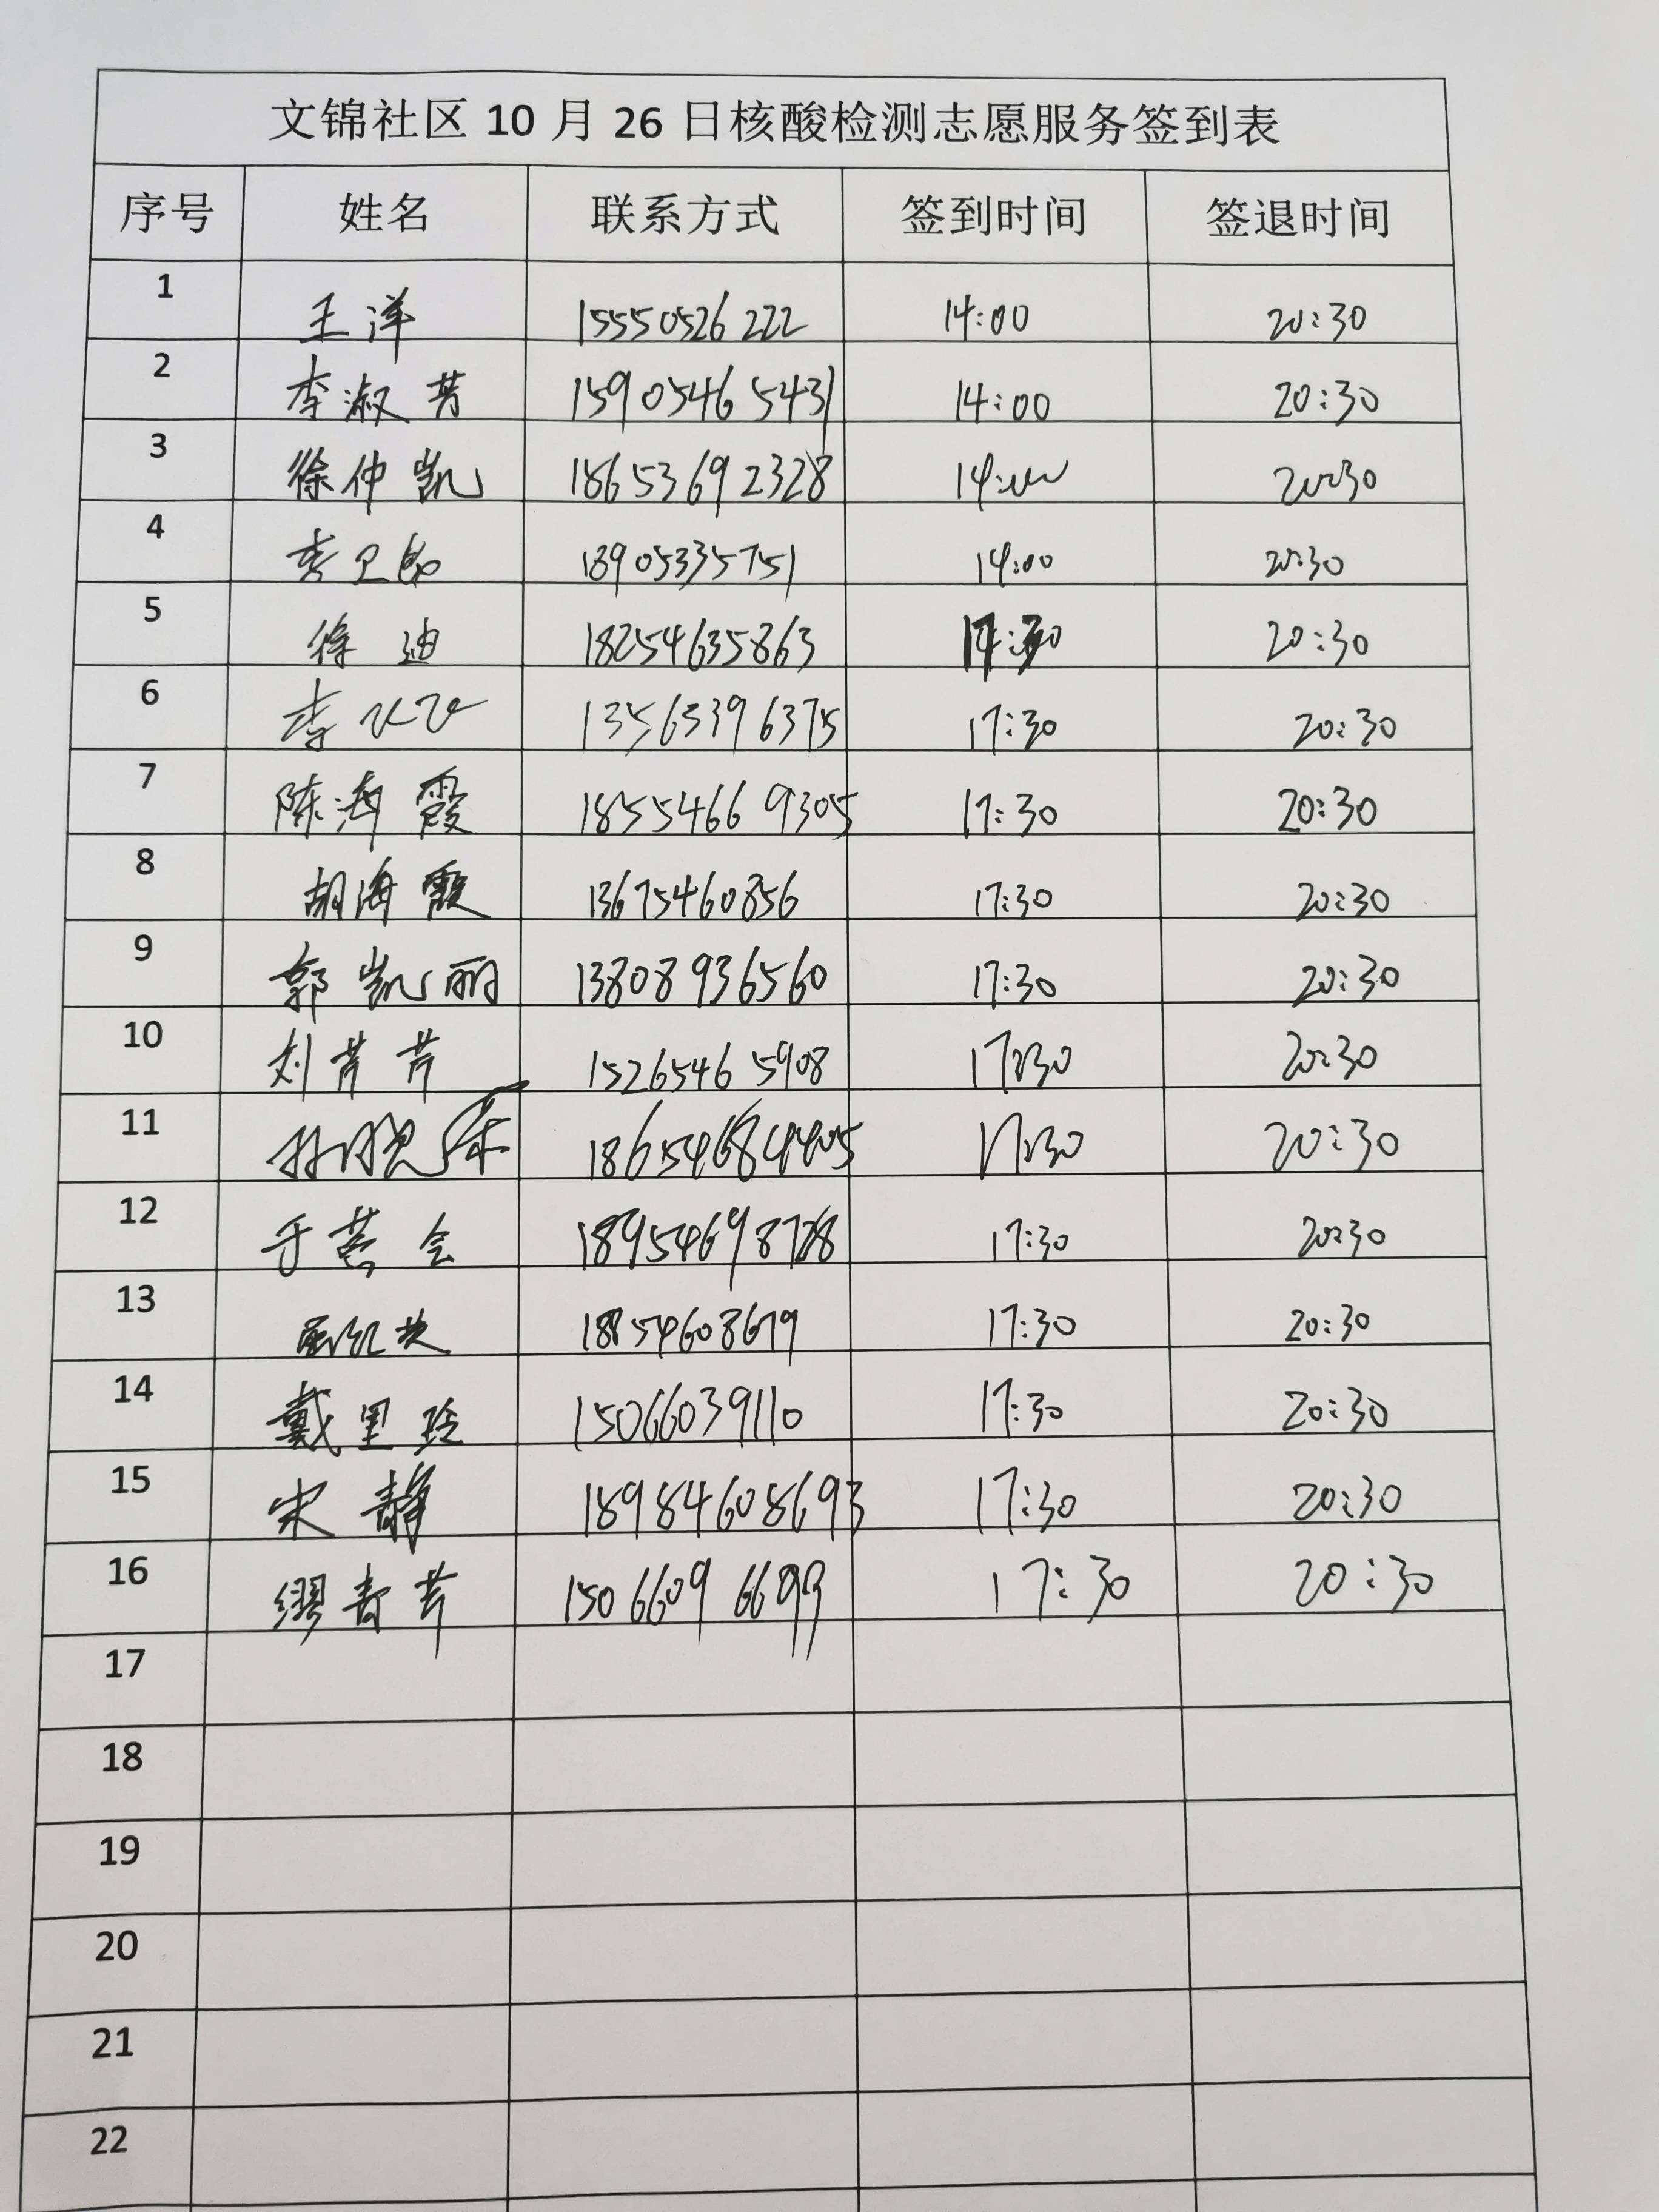 文锦社区 10 月 26 日核酸检测志愿服务签到表
序号 姓名 联系方式 签到时间 签退时间
1 王洋 15550526222 14:00 20:30
2 李淑芳 15905465431 14:00 20:30
3 徐仲凯 18653692328 14:00 20:30
4 李卫 18905335751 14:00 20:30
5 徐迪 18254635863 20:30
6 李 13563396375 17:30 20:30
7 陈海霞 18554669305 17:30 20:30
8 胡海霞 13675460856 17:30 20:30
9 郭凯丽 13808936560 17:30 20:30
10 刘芹芹 15265465908 17:30 20:30
11 孙晓乐 18654684405 17:30 20:30
12 于营会 18954698728 17:30 20:30
13 18854608679 17:30 20:30
14 戴里玲 15066039110 17:30 20:30
15 宋静 18984608693 17:30 20:30
16 缪青芹 15066096693 17:30 20:30
17
18
19
20
21
22